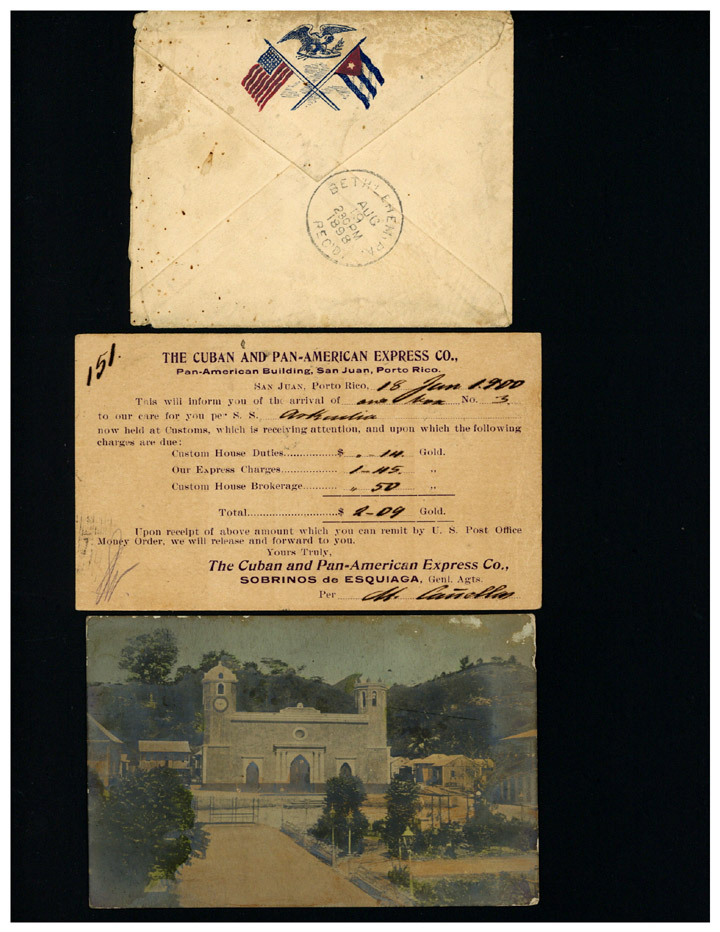 BETHLEHEM, PA.
AUG
2 30 PM
1898
REC'D.
151.
THE CUBAN AND PAN-AMERICAN EXPRESS CO.,
Pan-American Building, San Juan, Porto Rico.
SAN JUAN, Porto Rico, 18 Jan 1900
This will inform you of the arrival of one box No. 3
to our care for you per S. S. Arkadia
now held at Customs, which is receiving attention, and upon which the following
charges are due:
Custom House Duties...............$ „ - 14. Gold.
Our Express Charges................ 1-45. „
Custom House Brokerage.......... „ 50 „
Total...............................$ 2-09 Gold.
Upon receipt of above amount which you can remit by U. S. Post Office
Money Order, we will release and forward to you.
Yours Truly,
The Cuban and Pan-American Express Co.,
SOBRINOS de ESQUIAGA, Genl. Agts.
Per M. Cañellas